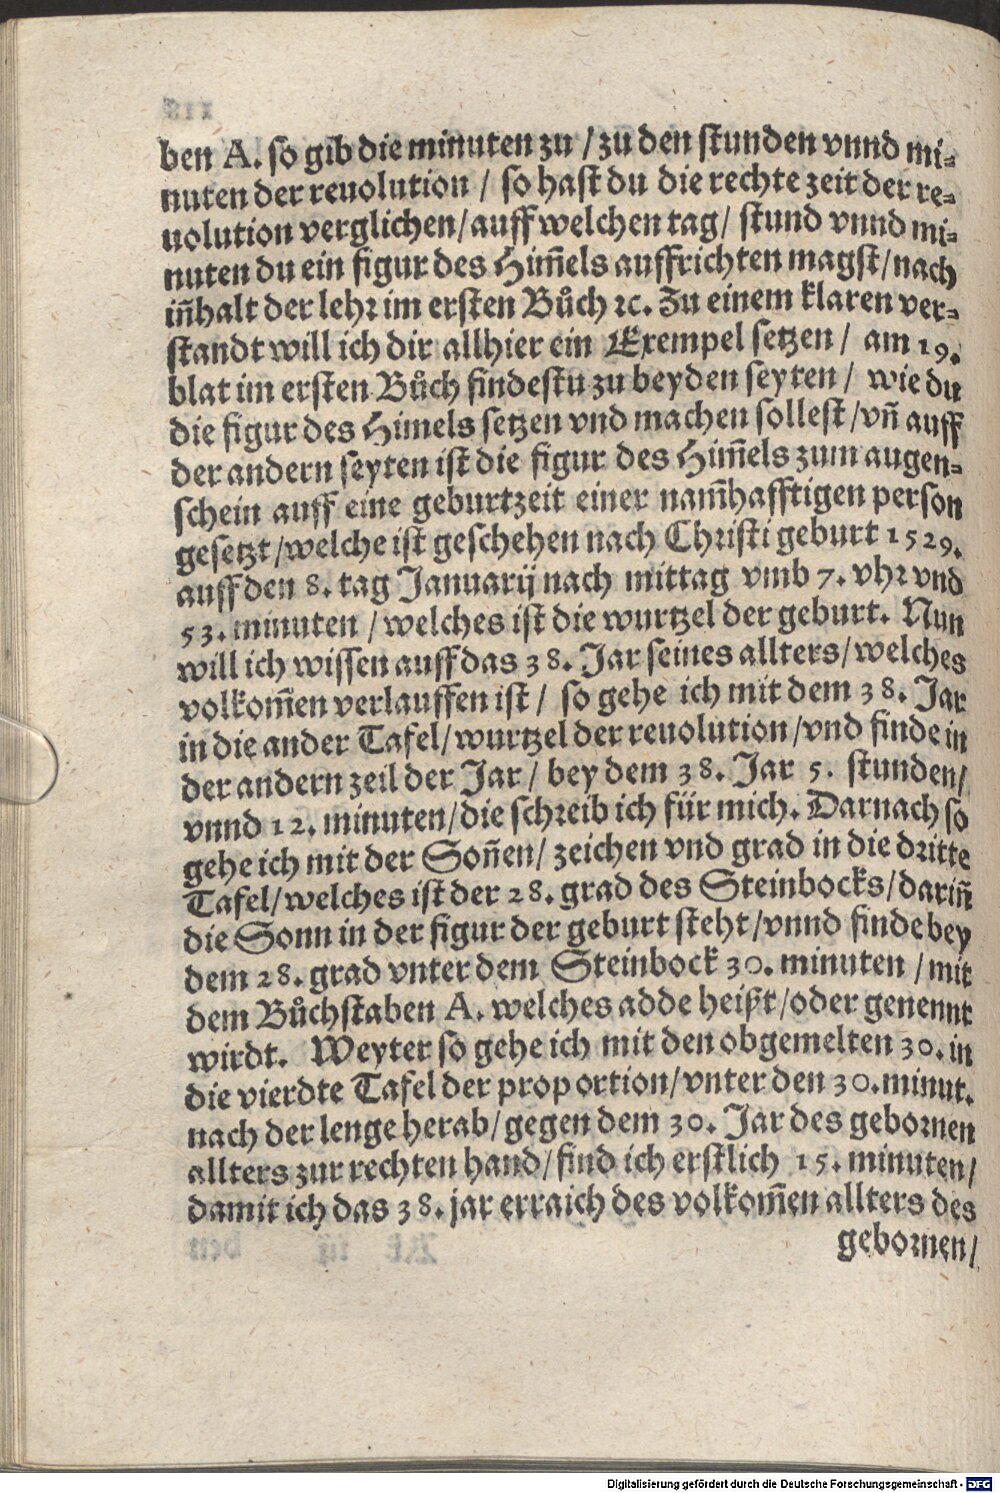 ben A. so gib die minuten zu / zu den stunden vnnd mi-
nuten der reuolution / so hast du die rechte zeit der re-
uolution verglichen/auff welchen tag/ stund vnnd mi-
nuten du ein figur des Him̃els auffrichten magst/nach
iñhalt der lehr im ersten Bůch ꝛc. Zu einem klaren ver-
standt will ich dir allhier ein Exempel setzen / am 19.
blat im ersten Bůch findestu zu beyden seyten / wie du
die figur des Himels setzen vnd machen sollest/vñ auff
der andern seyten ist die figur des Him̃els zum augen-
schein auff eine geburtzeit einer nam̃hafftigen person
gesetzt/welche ist geschehen nach Christi geburt 1529.
auff den 8. tag Januarij nach mittag vmb 7. vhr vnd
53. minuten / welches ist die wurtzel der geburt. Nun
will ich wissen auff das 38. Jar seines allters/welches
volkom̃en verlauffen ist / so gehe ich mit dem 38. Jar
in die ander Tafel/wurtzel der reuolution/vnd finde in
der andern zeil der Jar / bey dem 38. Jar 5. stunden/
vnnd 12. minuten/die schreib ich für mich. Darnach so
gehe ich mit der Soñen/ zeichen vnd grad in die dritte
Tafel/welches ist der 28. grad des Steinbocks/dariñ
die Sonn in der figur der geburt steht/vnnd finde bey
dem 28. grad vnter dem Steinbock 30. minuten / mit
dem Bůchstaben A. welches adde heißt/oder genennt
wirdt. Weyter so gehe ich mit den obgemelten 30. in
die vierdte Tafel der proportion/vnter den 30. minut.
nach der lenge herab/gegen dem 30. Jar des gebornen
allters zur rechten hand/find ich erstlich 15. minuten/
damit ich das 38. jar erraich des volkom̃en allters des
gebornen/
Digitalisierung gefördert durch die Deutsche Forschungsgemeinschaft - DFG